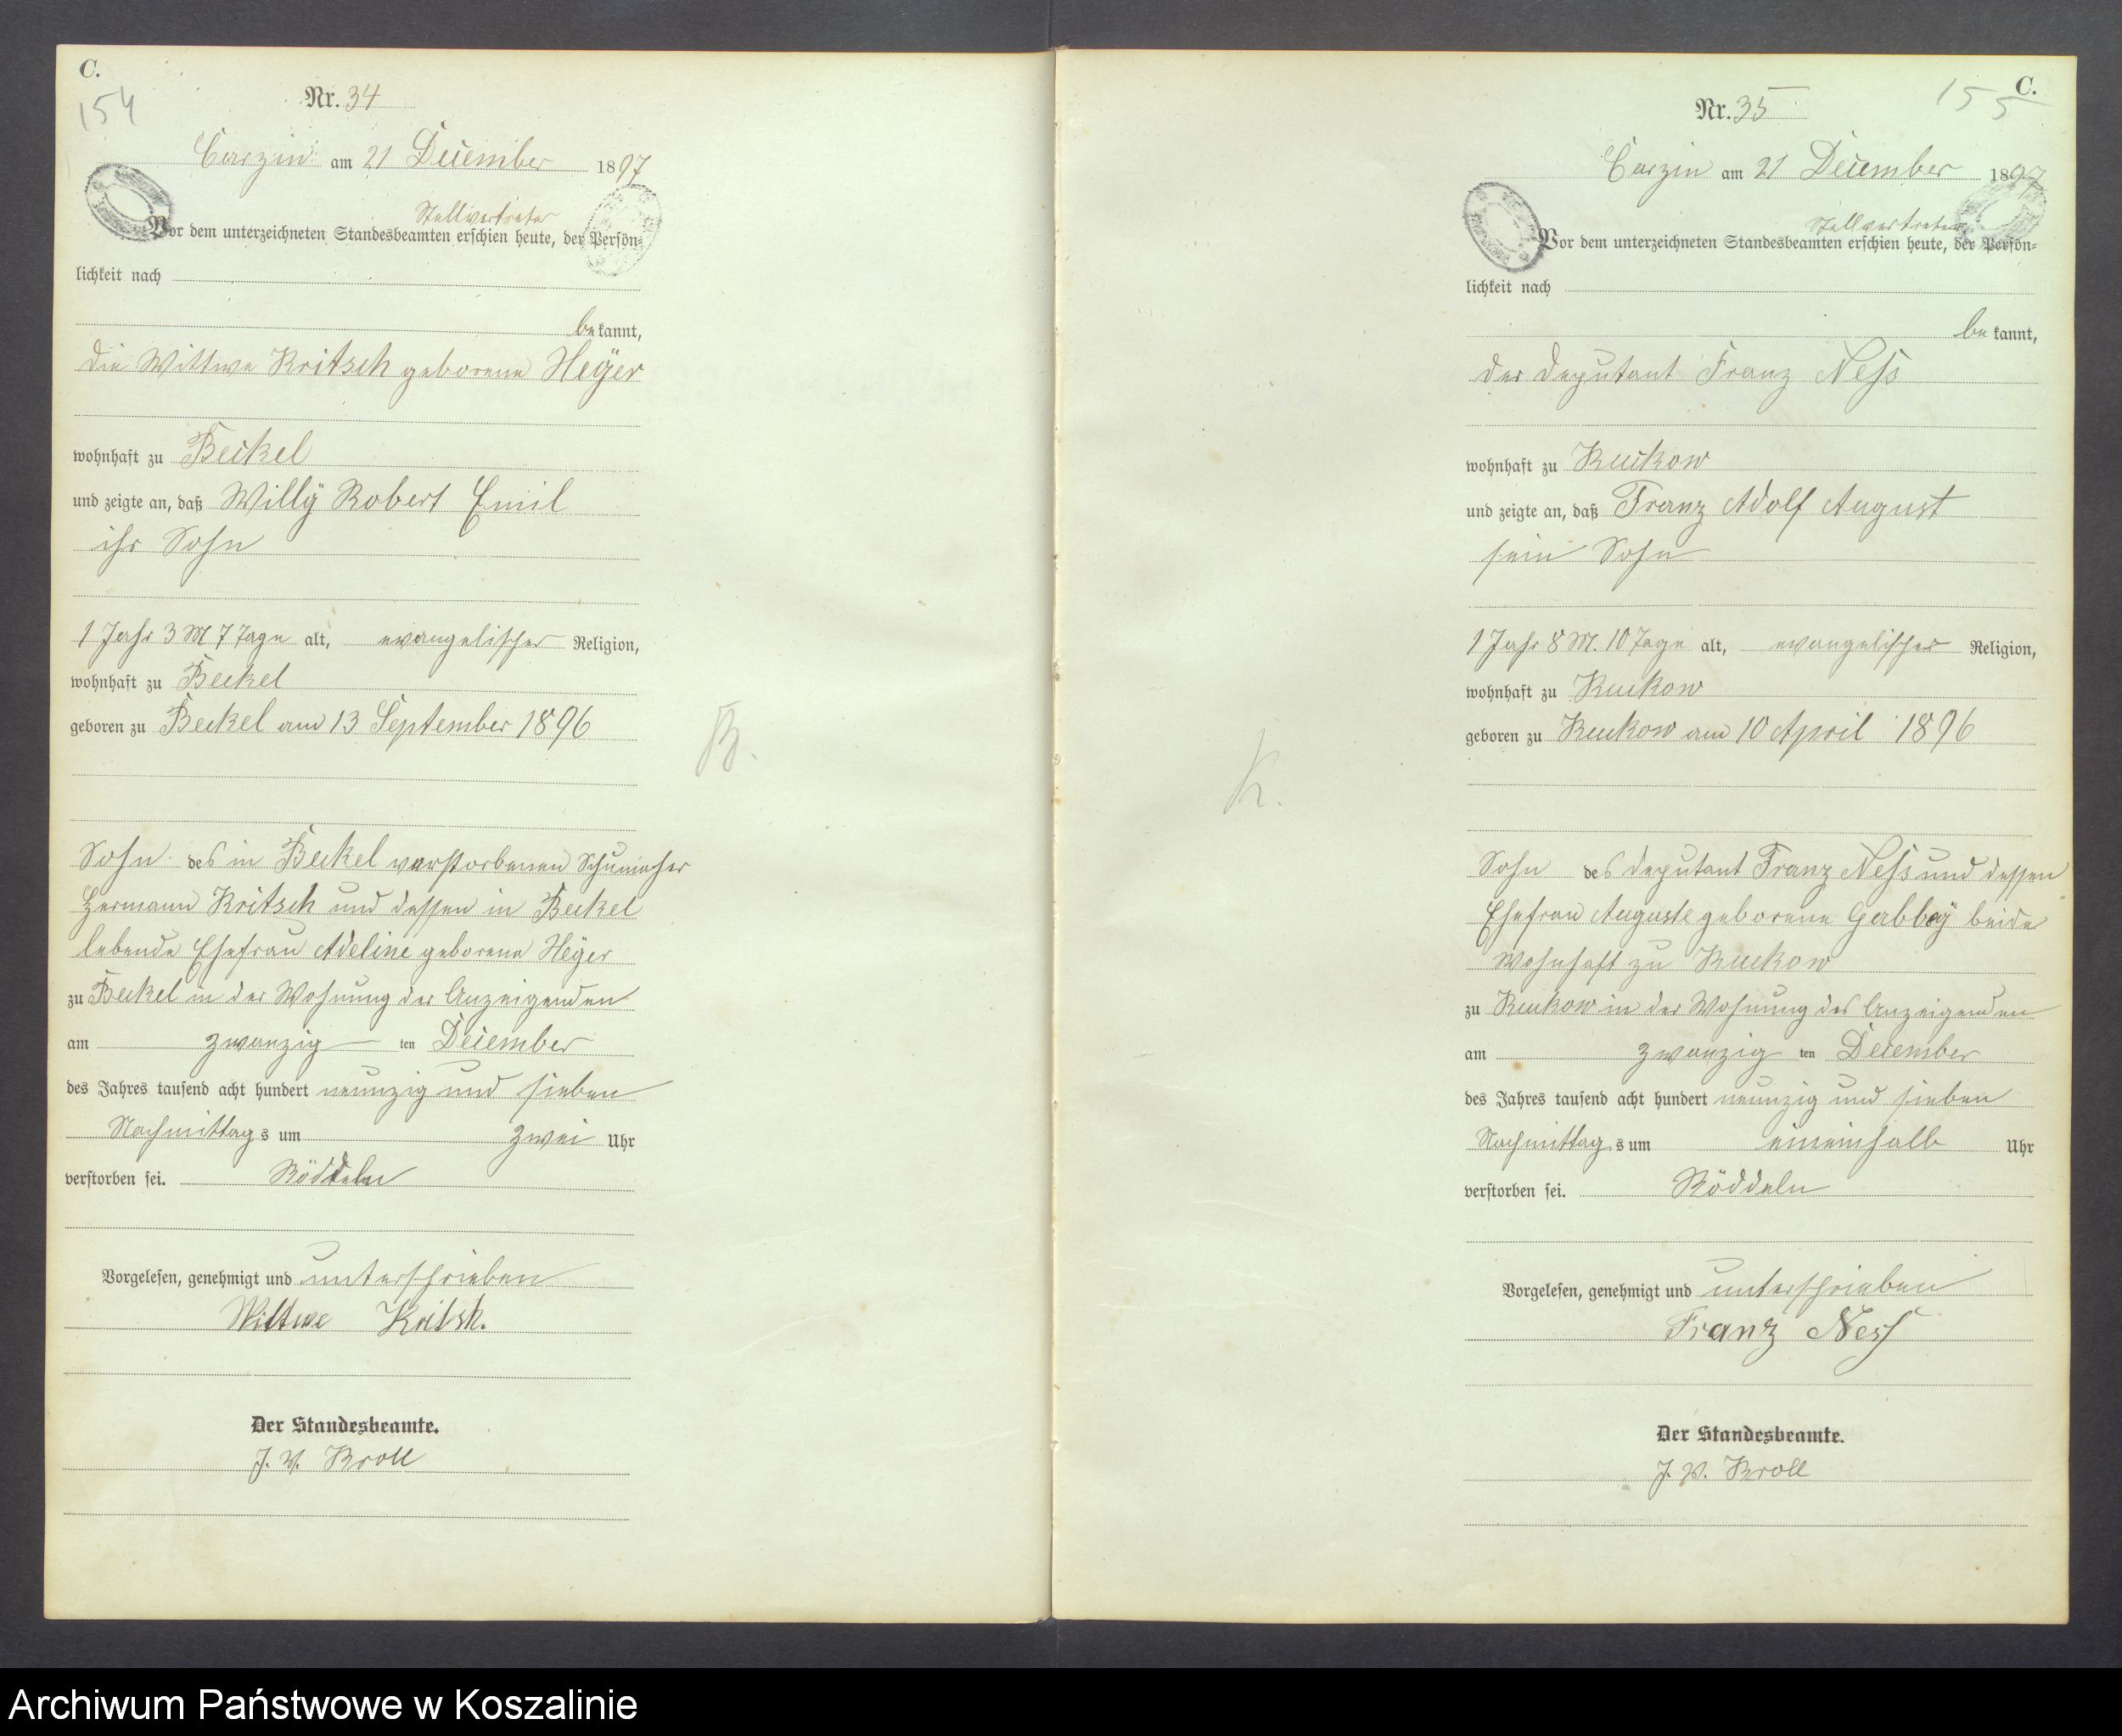 C.
154
Nr. 34
Carzin am 21 December 1897
Stellvertreter
Vor dem unterzeichneten Standesbeamten erschien heute, der Persön-
lichkeit nach
bekannt,
die Wittwe Kritsch geborene Heÿer
wohnhaft zu Beckel
und zeigte an, daß Willÿ Robert Emil
ihr Sohn
1 Jahr 3 M 7 Tage alt, evangelischer Religion,
wohnhaft zu Beckel
geboren zu Beckel am 13 September 1896
B.
Sohn des in Beckel verstorbenen Schumacher
Hermann Kritsch und dessen in Beckel
lebende Ehefrau Adeline geborene Heÿer
zu Beckel in der Wohnung der Anzeigenden
am zwanzig ten December
des Jahres tausend acht hundert neunzig und sieben
Nachmittags um zwei Uhr
verstorben sei. Röddeln
Vorgelesen, genehmigt und unterschrieben
Wittwe Kritsk.
Der Standesbeamte.
J. V. Kroll
C.
155
Nr. 35
Carzin am 21 December 1897
Stellvertreter
Vor dem unterzeichneten Standesbeamten erschien heute, der Persön-
lichkeit nach
bekannt,
der Deputant Franz Neſs
wohnhaft zu Kuckow
und zeigte an, daß Franz Adolf August
sein Sohn
1 Jahr 8 M. 10 Tage alt, evangelischer Religion,
wohnhaft zu Kuckow
geboren zu Kuckow am 10 April 1896
K.
Sohn des Deputant Franz Neſs und dessen
Ehefrau Auguste geborene Gabbeÿ beide
wohnhaft zu Kuckow
zu Kuckow in der Wohnung des Anzeigenden
am zwanzig ten December
des Jahres tausend acht hundert neunzig und sieben
Nachmittags um eineinhalb Uhr
verstorben sei. Röddeln
Vorgelesen, genehmigt und unterschrieben
Franz Neſs
Der Standesbeamte.
J. V. Kroll
Archiwum Państwowe w Koszalinie